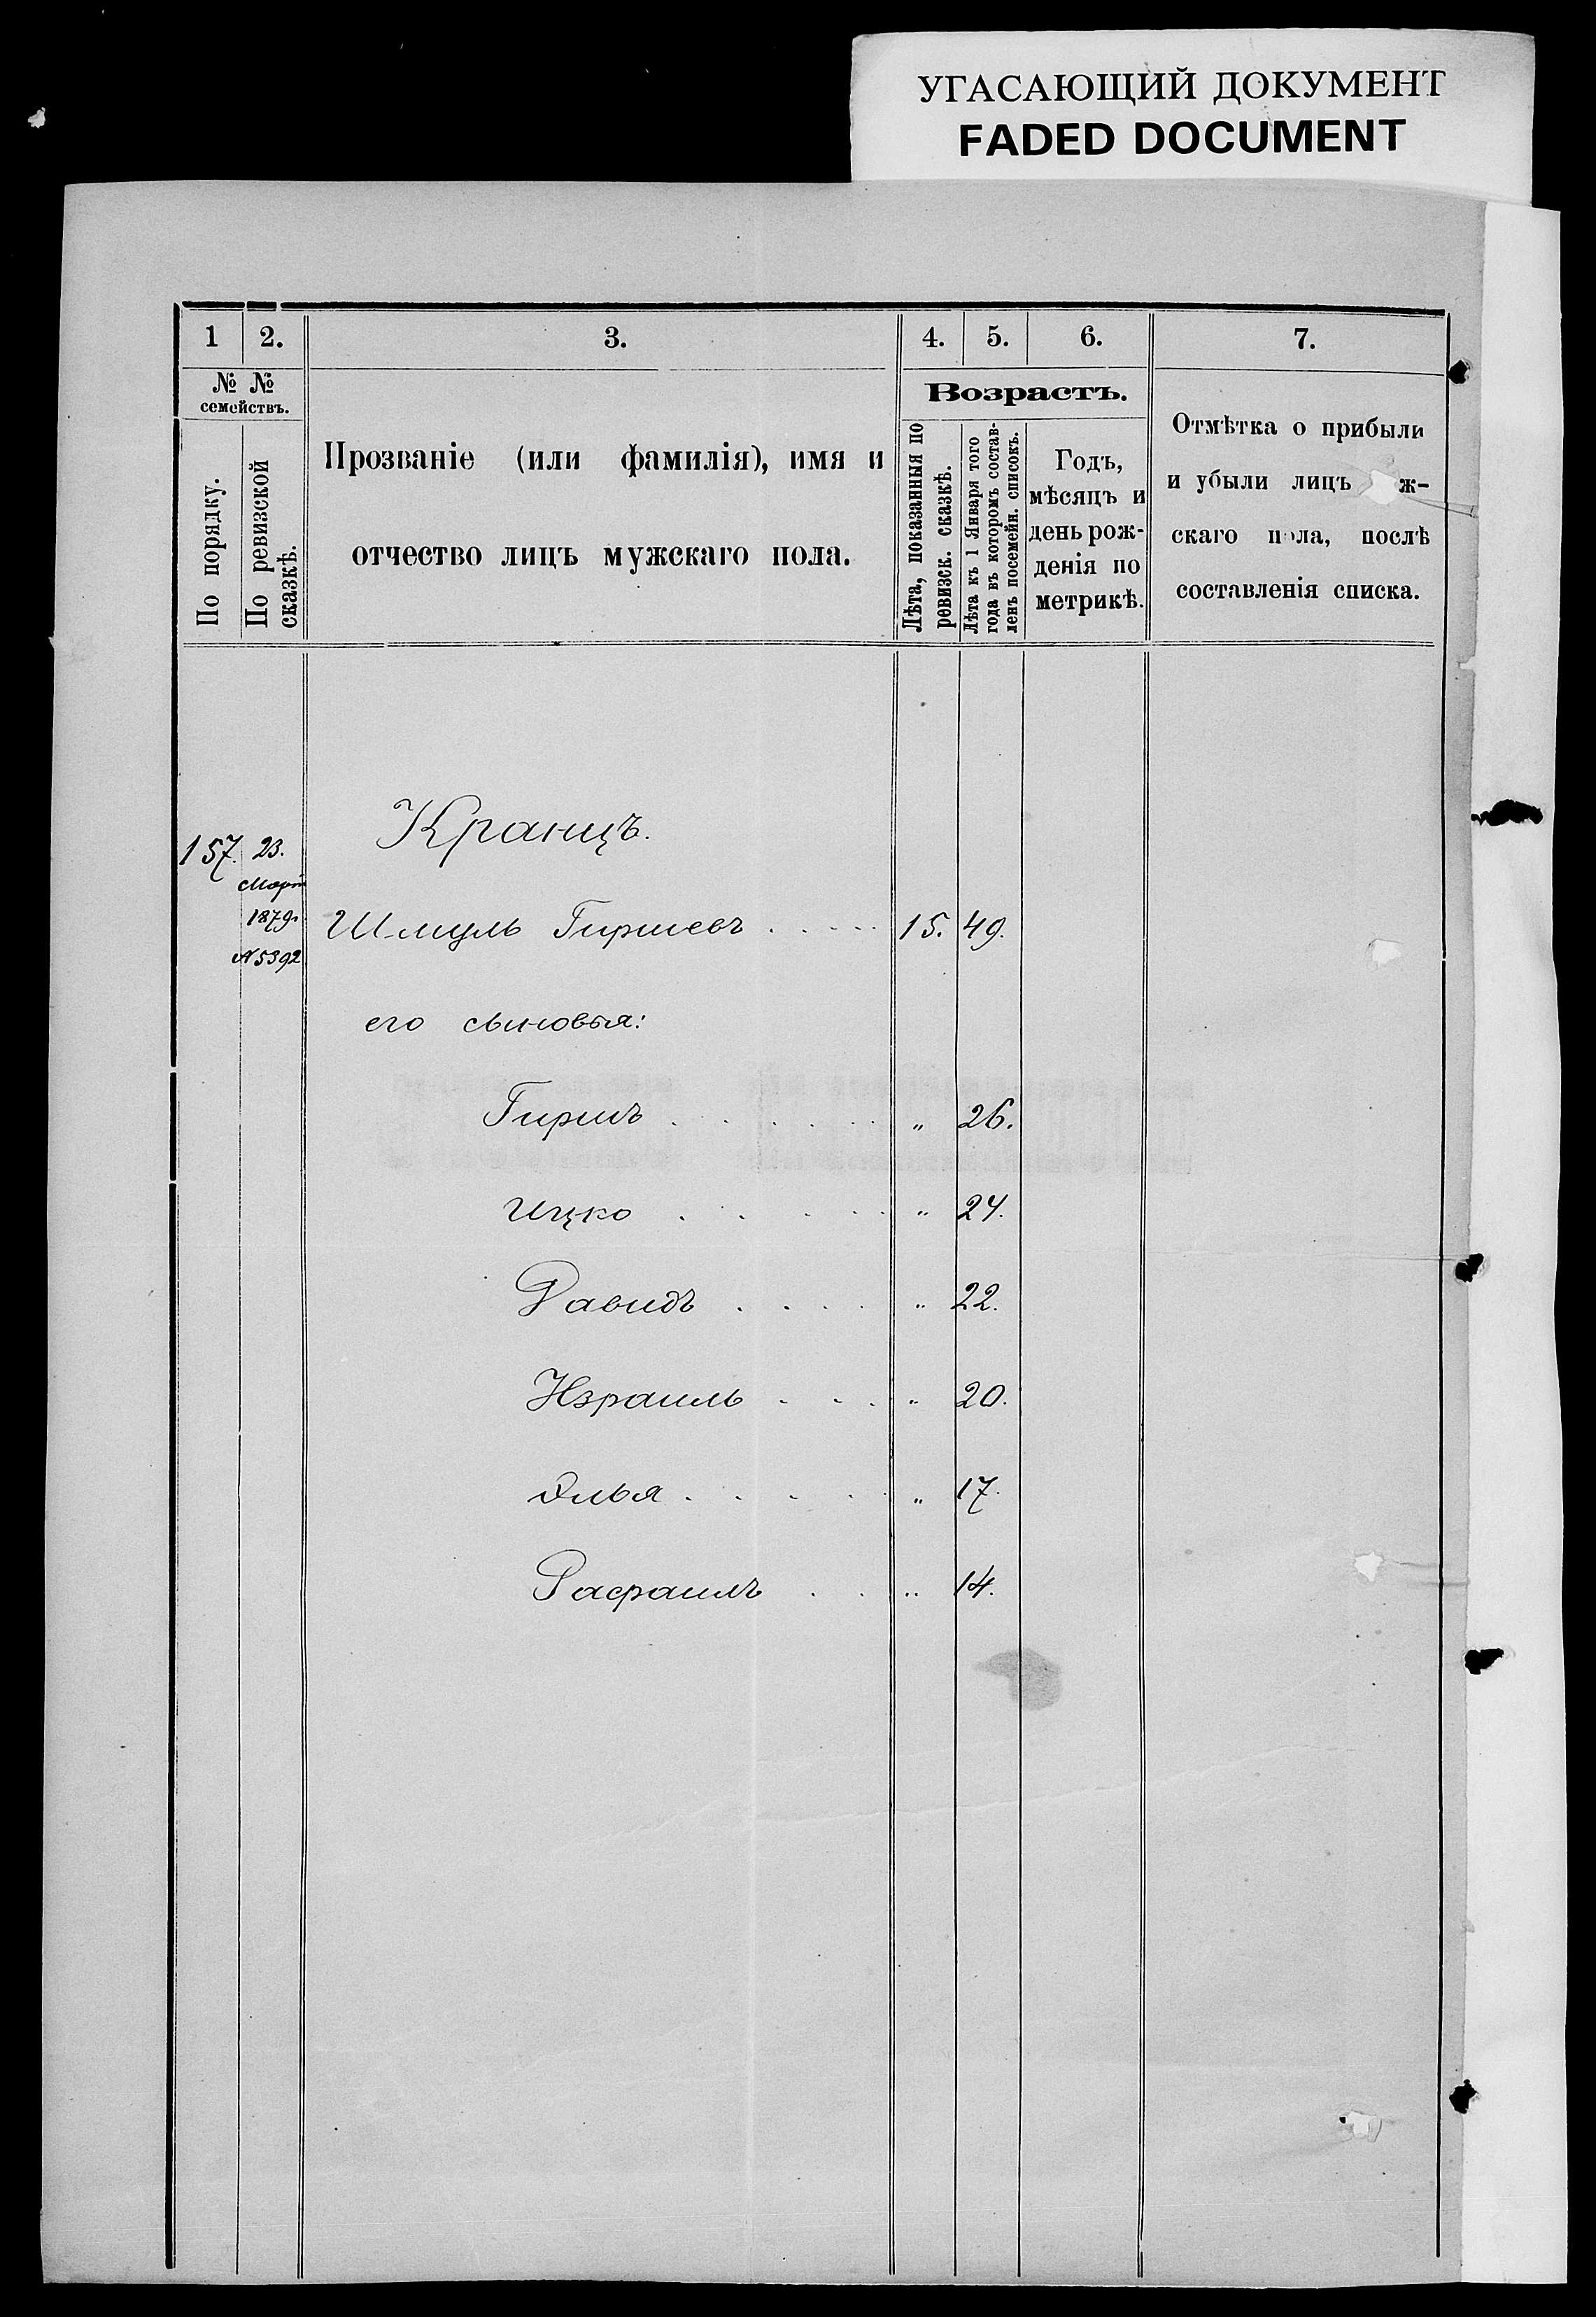 УГАСАЮЩИЙ ДОКУМЕНТ
FADED DOCUMENT
1 2. 3. 4. 5. 6. 7.
№ №
семействъ.
По порядку.
По ревизской
сказкѣ.
Прозваніе (или фамилія), имя и
отчество лицъ мужскаго пола.
Возрастъ.
Лѣта, показанныя по
ревизск. сказкѣ.
Лѣта къ 1 Января того
года въ которомъ состав-
ленъ посемейн. списокъ.
Годъ,
мѣсяцъ и
день рож-
денія по
метрикѣ.
Отмѣтка о прибыли
и убыли лицъ ж-
скаго пола, послѣ
составленія списка.
157. 23. Кранцъ.
Март
1879г.
Шмуль Гиршевъ . . . . . 15. 49.
№5392
его сыновья:
Гиршъ . . . . . . „ 26.
Ицко . . . . . „ 24.
Давидъ . . . . „ 22.
Израиль . . . „ 20.
Элья . . . . . „ 17.
Рафаилъ . . . „ 14.